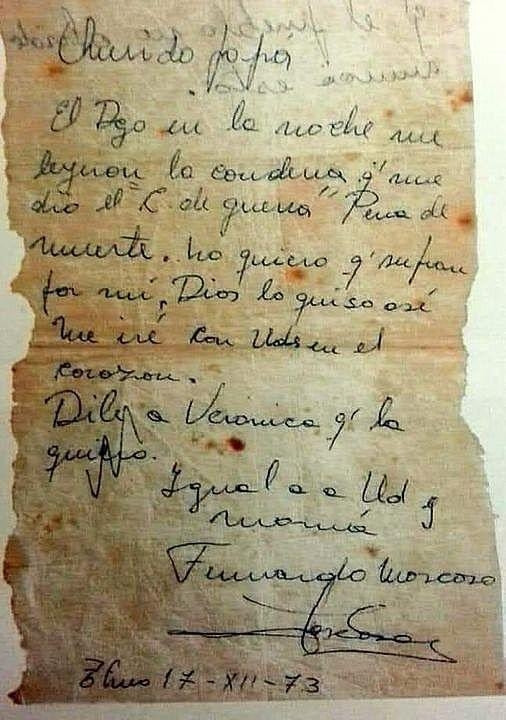 Querido papá
El Dgo en la noche me
leyeron la condena q' me
dio el "C. de guerra" Pena de
muerte. no quiero q' sufran
por mí, Dios lo quiso así
me iré con Uds en el
corazon.
Dile a Veronica q' la
quiero.
Igual a a Ud y
mamá
Fernando Moscoso
17-XII-73